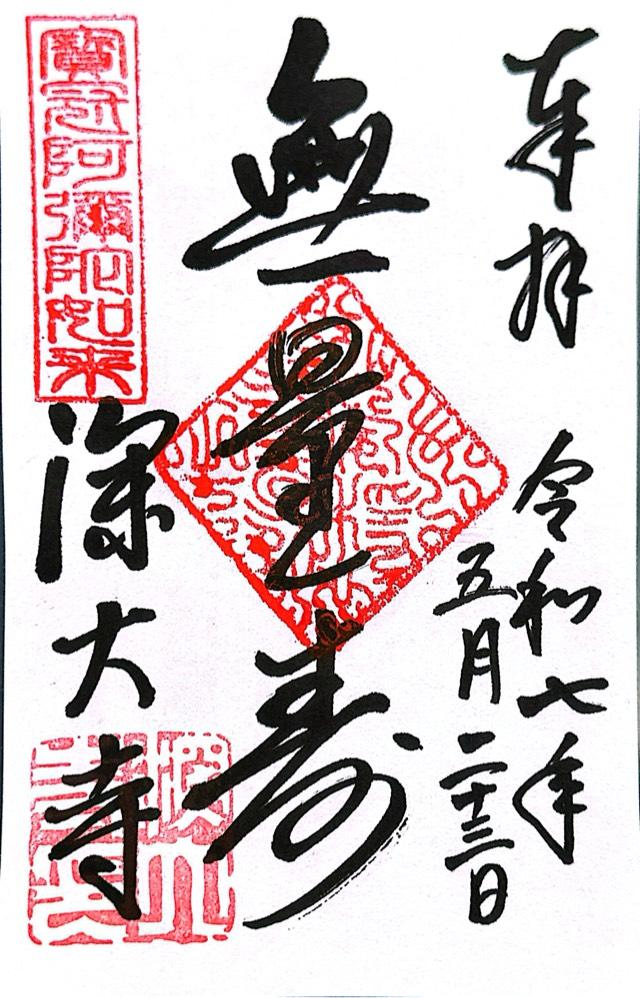 奉拝
令和七年
五月二十三日
無量寿
寳冠阿彌陀如来
深大寺